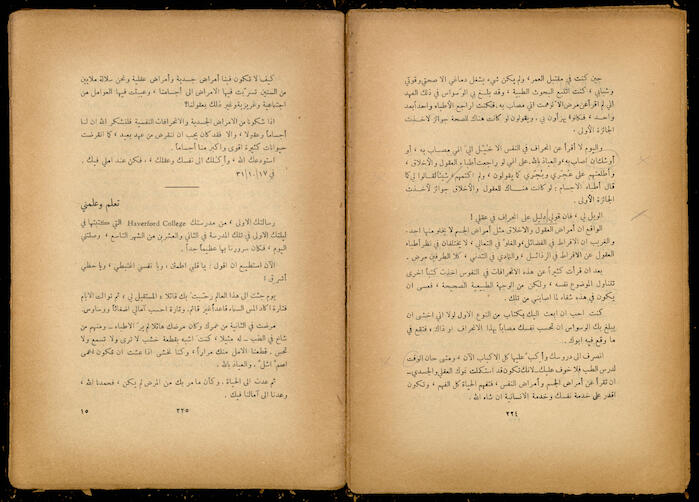 حين كنت في مقتبل العمر، ولم يكن شيء يشغل دماغي الا صحتي وقوتي
وشبابي، كنت اتتبع البحوث الطبية، وقد يبلغ بي الوسواس في ذلك العهد
اني لم اقرأ عن مرض الا توهمت اني مصاب به. فكنت اراجع الأطباء واحداً بعد
واحد، فكانوا يهزأون بي. ويقولون لو كانت هناك للصحة جوائز لاخذت
الجائزة الأولى.
واليوم لا أقرأ عن انحراف في النفس الا خُيّل اليّ اني مصاب به، أو
أوشك ان اصاب به، والعياذ بالله. على اني لو راجعت أطباء العقول والأخلاق،
وأطلعتهم على عُجَري وبُجَري كما يقولون، ولم اكتمهم شيئاً لقالوا لي كما
قال أطباء الاجسام: لو كانت هناك للعقول والأخلاق جوائز لأخذت
الجائزة الأولى.
الويل لي، فان قولي دليل على انحراف في عقلي!
الواقع ان أمراض العقول والاخلاق مثل أمراض الجسم لا يخلو منها احد.
والغريب ان الافراط في الفضائل، والغلو في التعالي، لا يختلفان في نظر أطباء
العقول عن الافراط في الرذائل، والتمادي في التدني، كلا الطرفين مرض.
بعد ان قرأت كثيراً عن هذه الانحرافات في النفوس اخذت كتباً اخرى
تتناول الموضوع نفسه، ولكن من الوجهة الطبيعية الصحيحة، فعسى ان
يكون في هذه شفاء لما اصابني من تلك.
كنت احب ان ابعث اليك بكتاب من النوع الاول لولا اني اخشى ان
يبلغ بك الوسواس ان تحسب نفسك مصاباً بهذا الانحراف او ذاك، فتقع في
ما وقع فيه ابوك..
انصرف الى دروسك وأكبّ عليها كل الاكباب الآن، ومتى حان الوقت
لدرس الطب فلا خوف عليك، لانك تكون قد استكملت نموك العقلي والجسدي —
ان تقرأ عن أمراض الجسم وأمراض النفس، فتفهم الحياة كل الفهم، وتكون
اقدر على خدمة نفسك وخدمة الانسانية ان شاء الله.
٢٢٤
كيف لا تكون فينا أمراض جسدية وأمراض عقلية ونحن سلالة ملايين
من السنين تسرّبت فيها الامراض الى أجسامنا، وعبثت فيها العوامل من
اجتماعية وغريزية وغير ذلك بعقولنا؟
اذا شكونا من الامراض الجسدية والانحرافات النفسية فلنشكر الله ان لنا
أجساماً وعقولا، والا فقد كان يجب ان ننقرض من عهد بعيد، كما انقرضت
حيوانات كثيرة اقوى واكبر منا أجساماً.
استودعك الله، وأكلك الى نفسك وعقلك، فكن عند املي فيك.
في ٣١/١٠/١٧
تعلم وعلمني
رسالتك الاولى، من مدرستك Haverford College التي كتبتها في
ليلتك الاولى في تلك المدرسة في الثاني والعشرين من الشهر التاسع، وصلتني
اليوم، فكان سرورنا بها عظيماً جداً.
الآن استطيع ان اقول: يا قلبي اطمئن، ويا نفسي اغتبطي، ويا حظي
أشرق!
يوم جئت الى هذا العالم رحّبتُ بك قائلا: المستقبل لي، ثم توالت الايام
فتارة اكاد المس السماء قاعداً غير قائم، وتارة احسب آمالي اضغاثاً ووساوس.
مرضت في الثانية من عمرك وكان مرضك هائلا لم يرَ الاطباء — ومنهم من
شاخ في الطب — له مثيلا، كنت اشبه بقطعة خشب لا ترى ولا تسمع ولا
تحس. قطعنا الامل منك مراراً، وكنا نخشى اذا عشت ان تكون اعمى
اصمّ اشلّ، والعياذ بالله.
ثم عدت الى الحياة، وكأن ما مر بك من المرض لم يكن، فحمدنا الله،
وعدنا الى آمالنا فيك.
٢٢٥
١٥